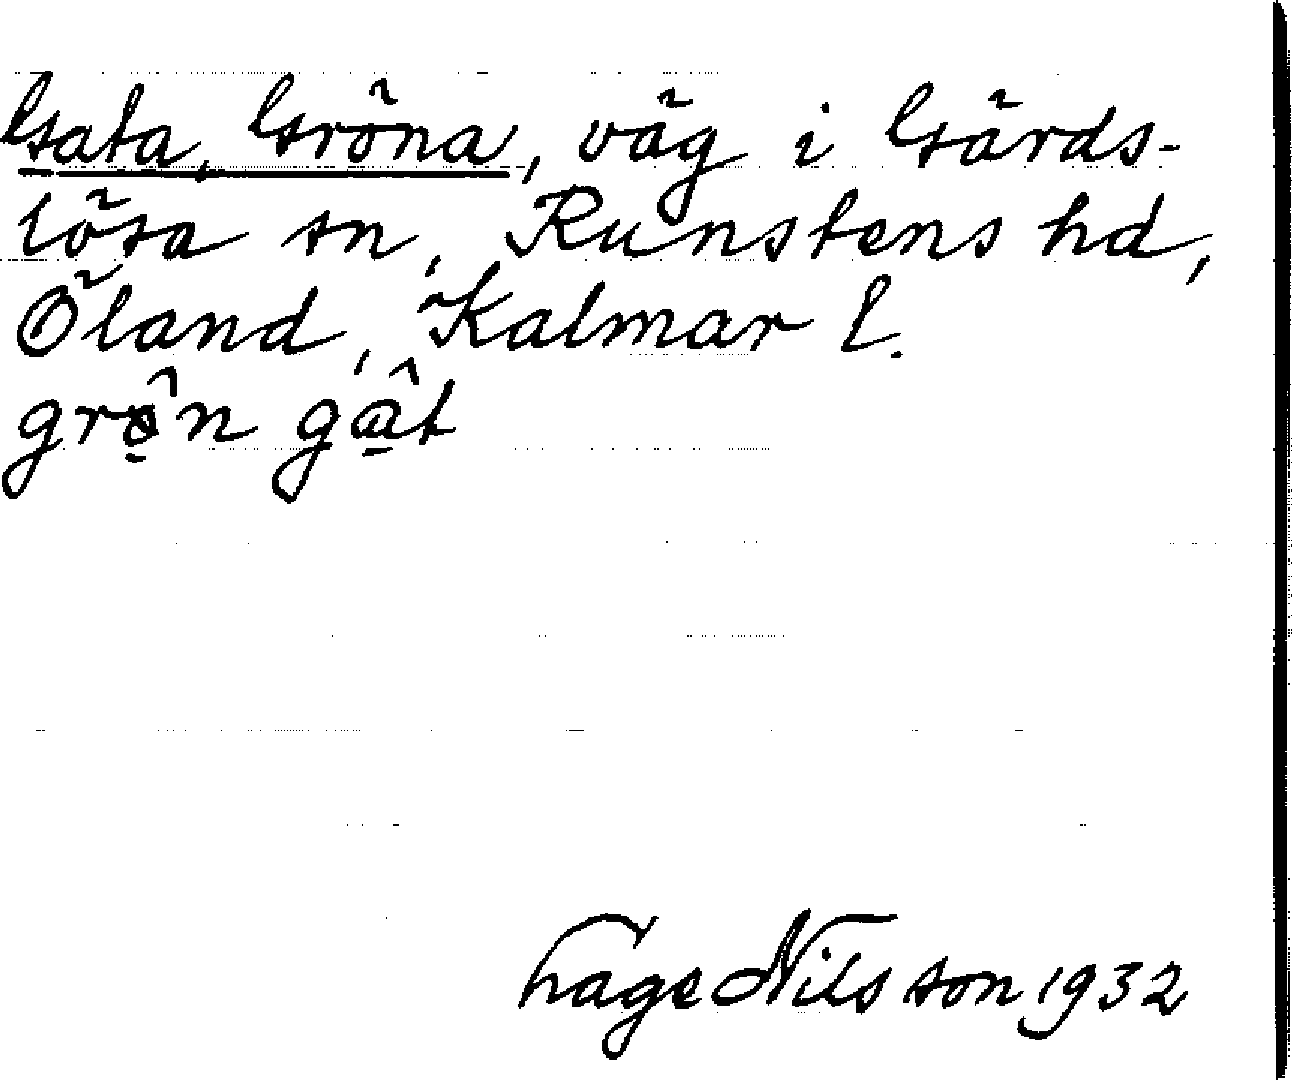 Gata, Gröna, väg i Gärds-
lösa sn, Runstens hd,
Öland, Kalmar l.
grö̂n gâ̱t
Tage Nilsson 1932